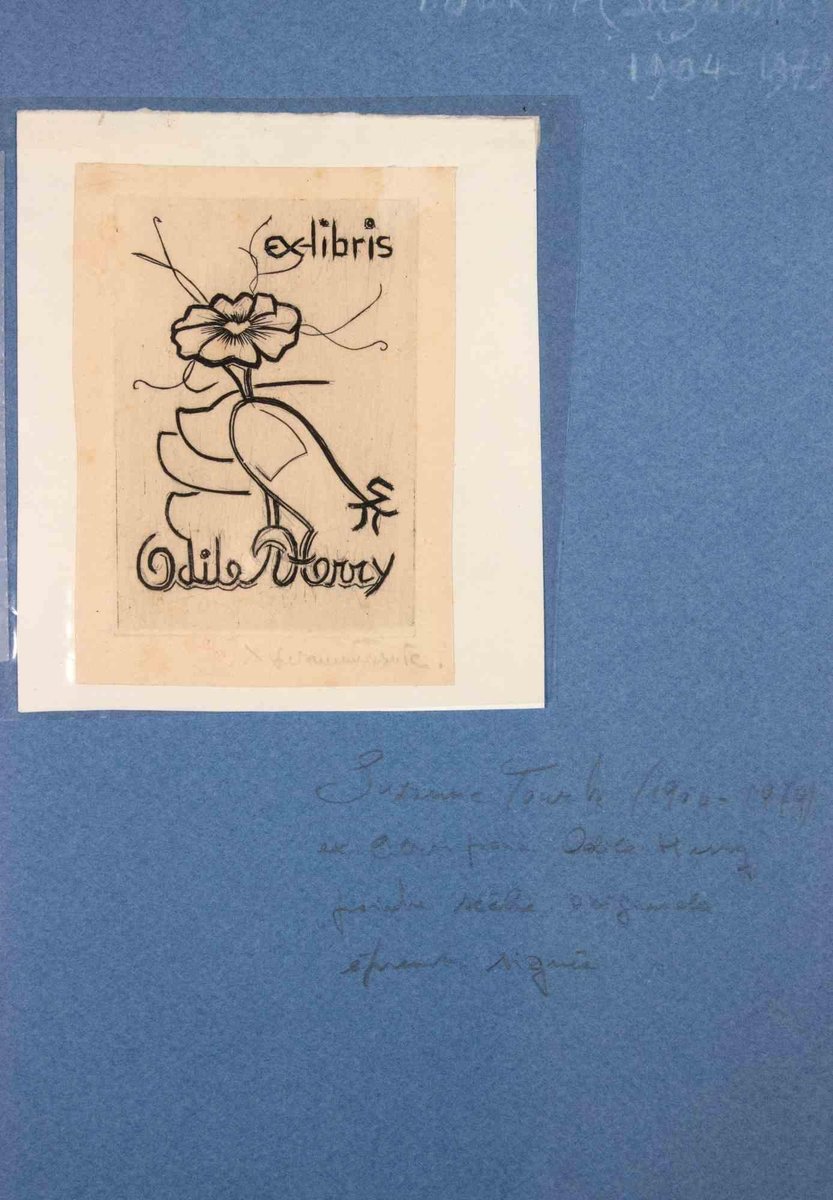 (Suzanne)
1904-1979
ex-libris
Odile Henry
Suzanne Tourte (1904-1979)
ex libris pour Odile Henry
pointe sèche originale
épreuve signée